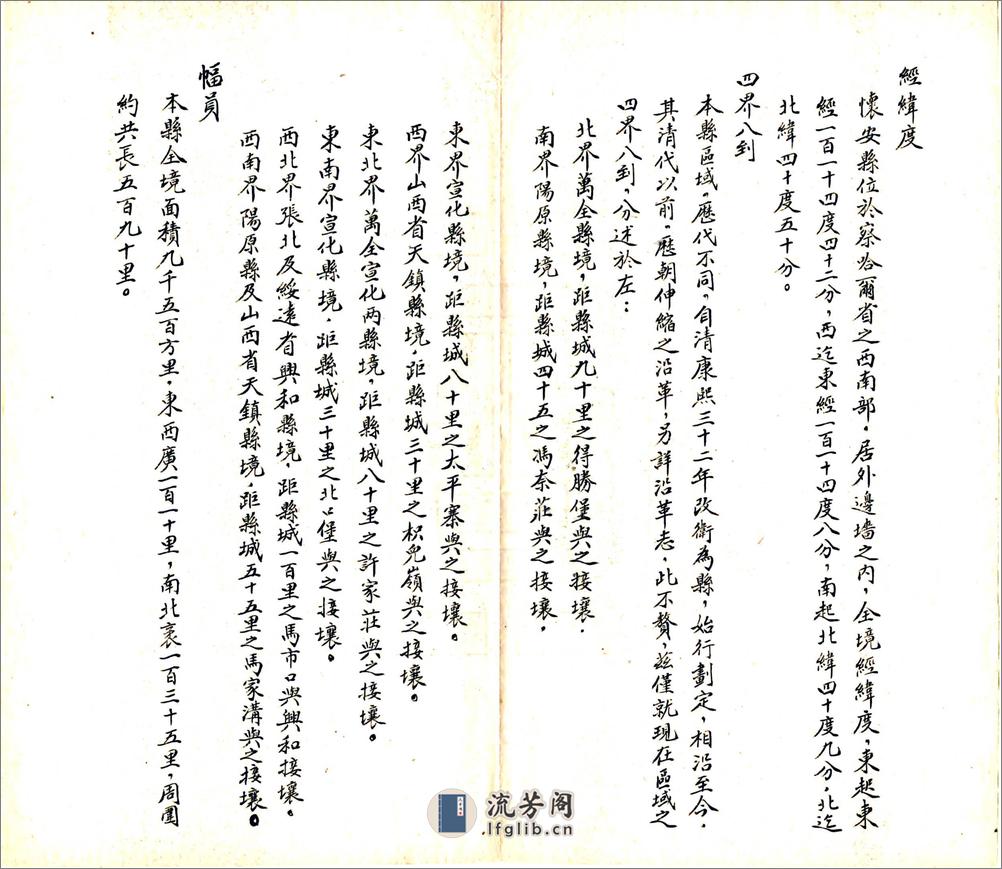 經緯度
懷安縣位於察哈爾省之西南部。居外邊墻之内，全境經緯度，東起東
經一百一十四度四十二分，西迄東經一百一十四度八分，南起北緯四十度九分，北迄
北緯四十度五十分。
四界八到
本縣區域，歷代不同，自清康熙三十二年改衛為縣，始行劃定，相沿至今，
其清代以前，歷朝伸縮之沿革，另詳沿革志，此不贅，茲僅就現在區域之
四界八到，分述於左：
北界萬全縣境，距縣城九十里之得勝堡與之接壤．
南界陽原縣境，距縣城四十五之馮奈莊與之接壤，
東界宣化縣境，距縣城八十里之太平寨與之接壤。
西界山西省天鎮縣境，距縣城三十里之枳兒嶺與之接壤。
東北界萬全宣化两縣境，距縣城八十里之許家莊與之接壤。
東南界宣化縣境．距縣城三十里之北口堡與之接壤。
西北界張北及綏遠省興和縣境，距縣城一百里之馬市口與興和接壤。
西南界陽原縣及山西省天鎮縣境，距縣城五十五里之馬家溝與之接壤。
幅員
本縣全境面積九千五百方里，東西廣一百一十里，南北袤一百三十五里，周圍
約共長五百九十里。
流芳阁
lfglib.cn